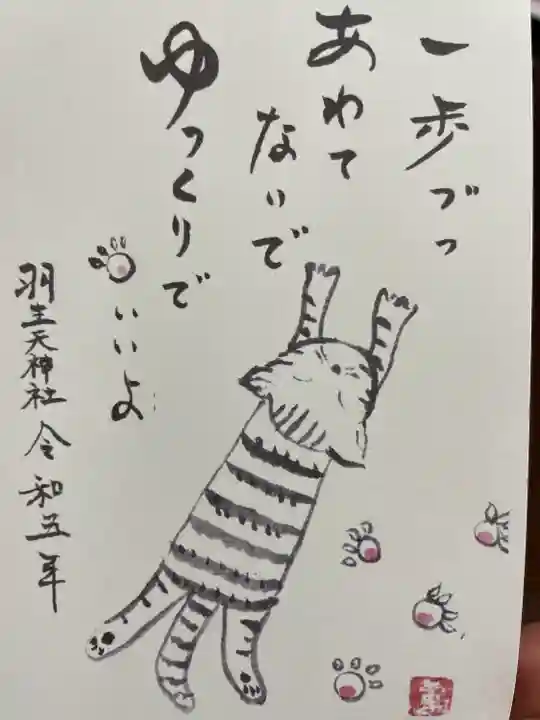 一歩づつ
あわて
ないで
ゆっくりで
いいよ
羽生天神社 令和五年